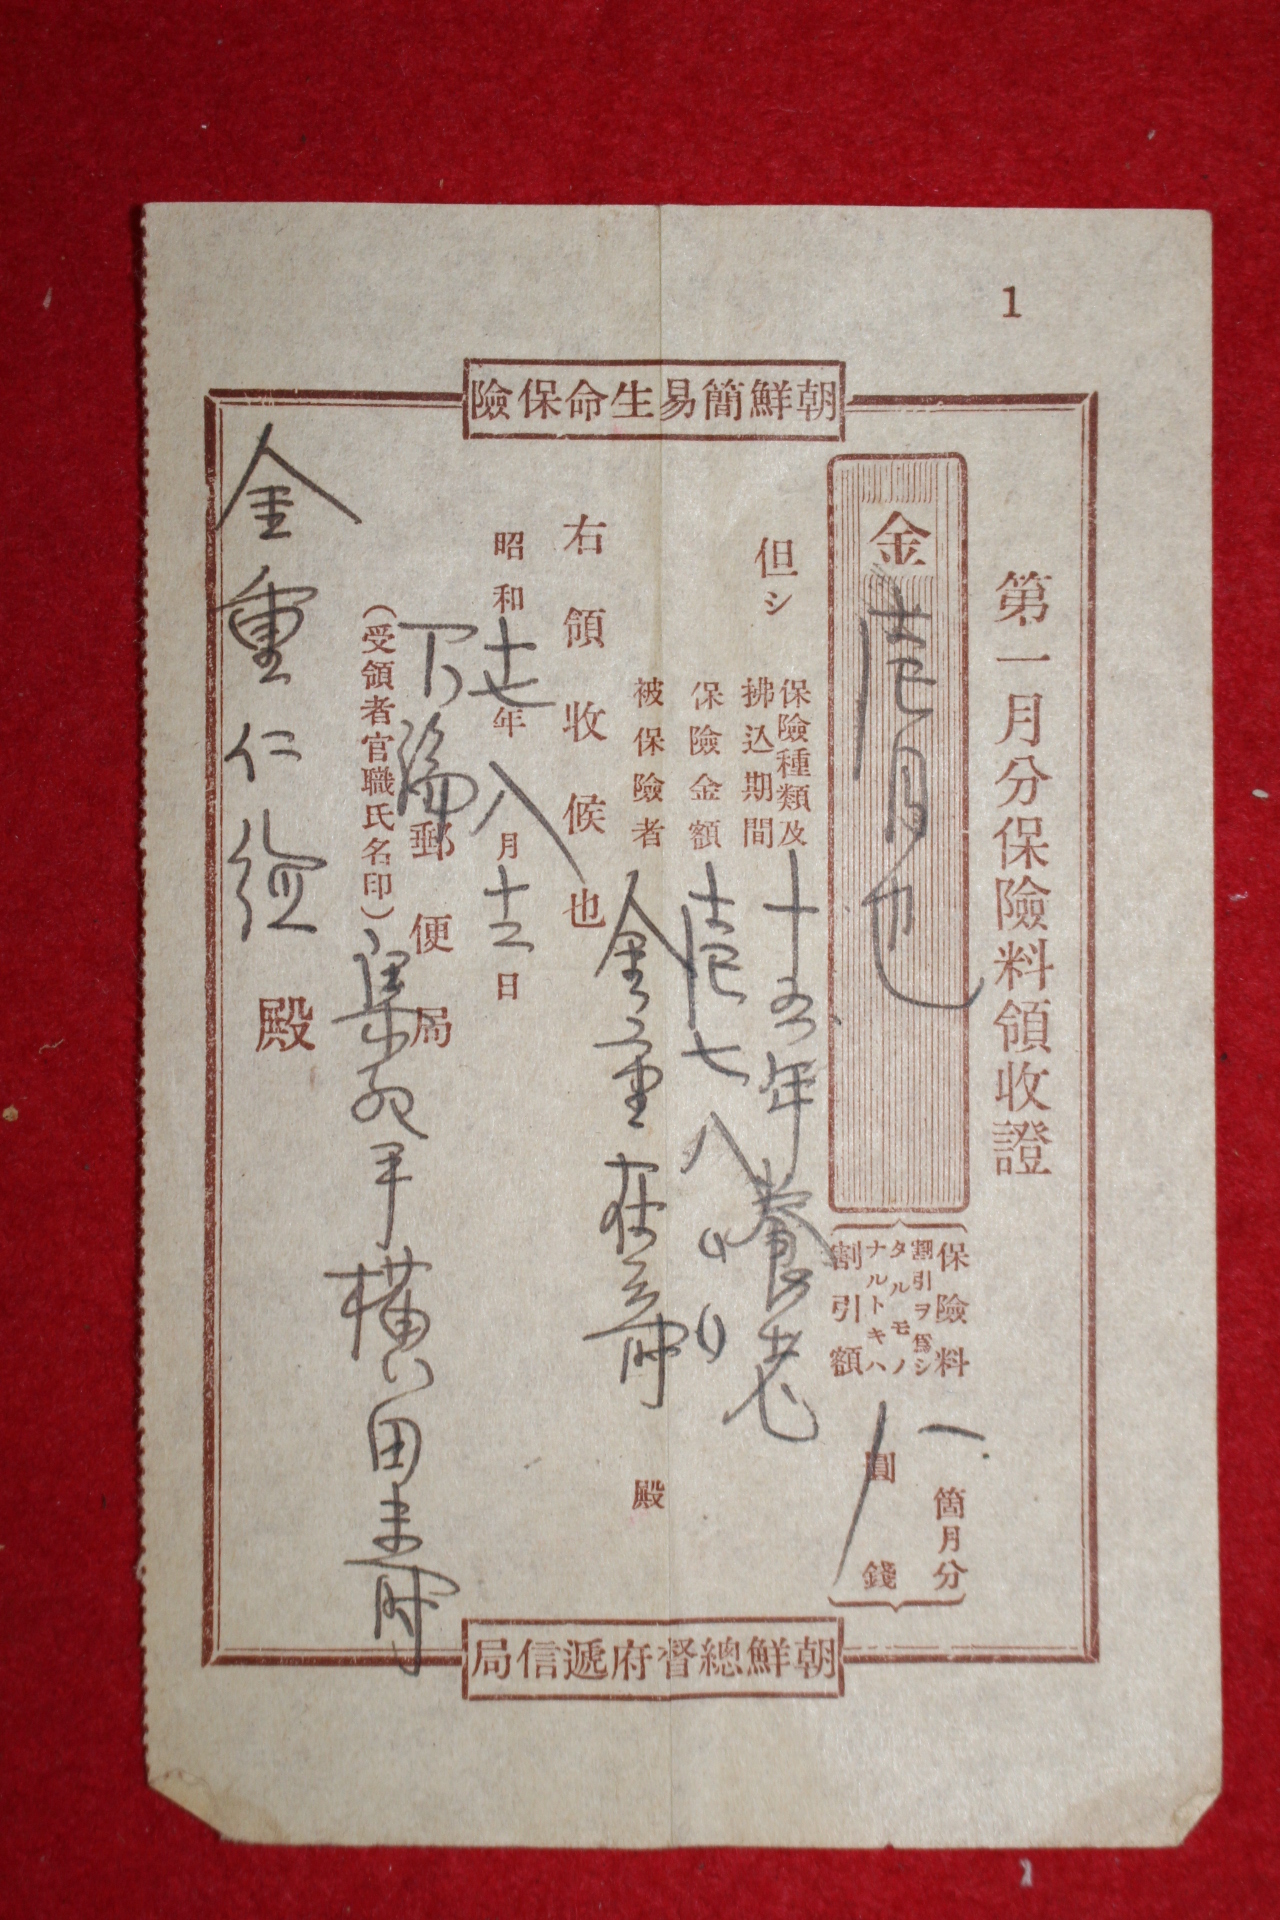 1
朝鮮簡易生命保險
第一月分保險料領收證
金壱円也
保險料 一箇月分
割引ヲ爲シタルモノナルトキハ
割引額 圓 錢
但シ
保險種類及拂込期間 十五年養老
保險金額 壱七八
被保險者 金重在 殿
右領收候也
昭和十七年八月十三日
郵便局
(受領者官職氏名印) 集 横田
金重仁 殿
朝鮮總督府遞信局